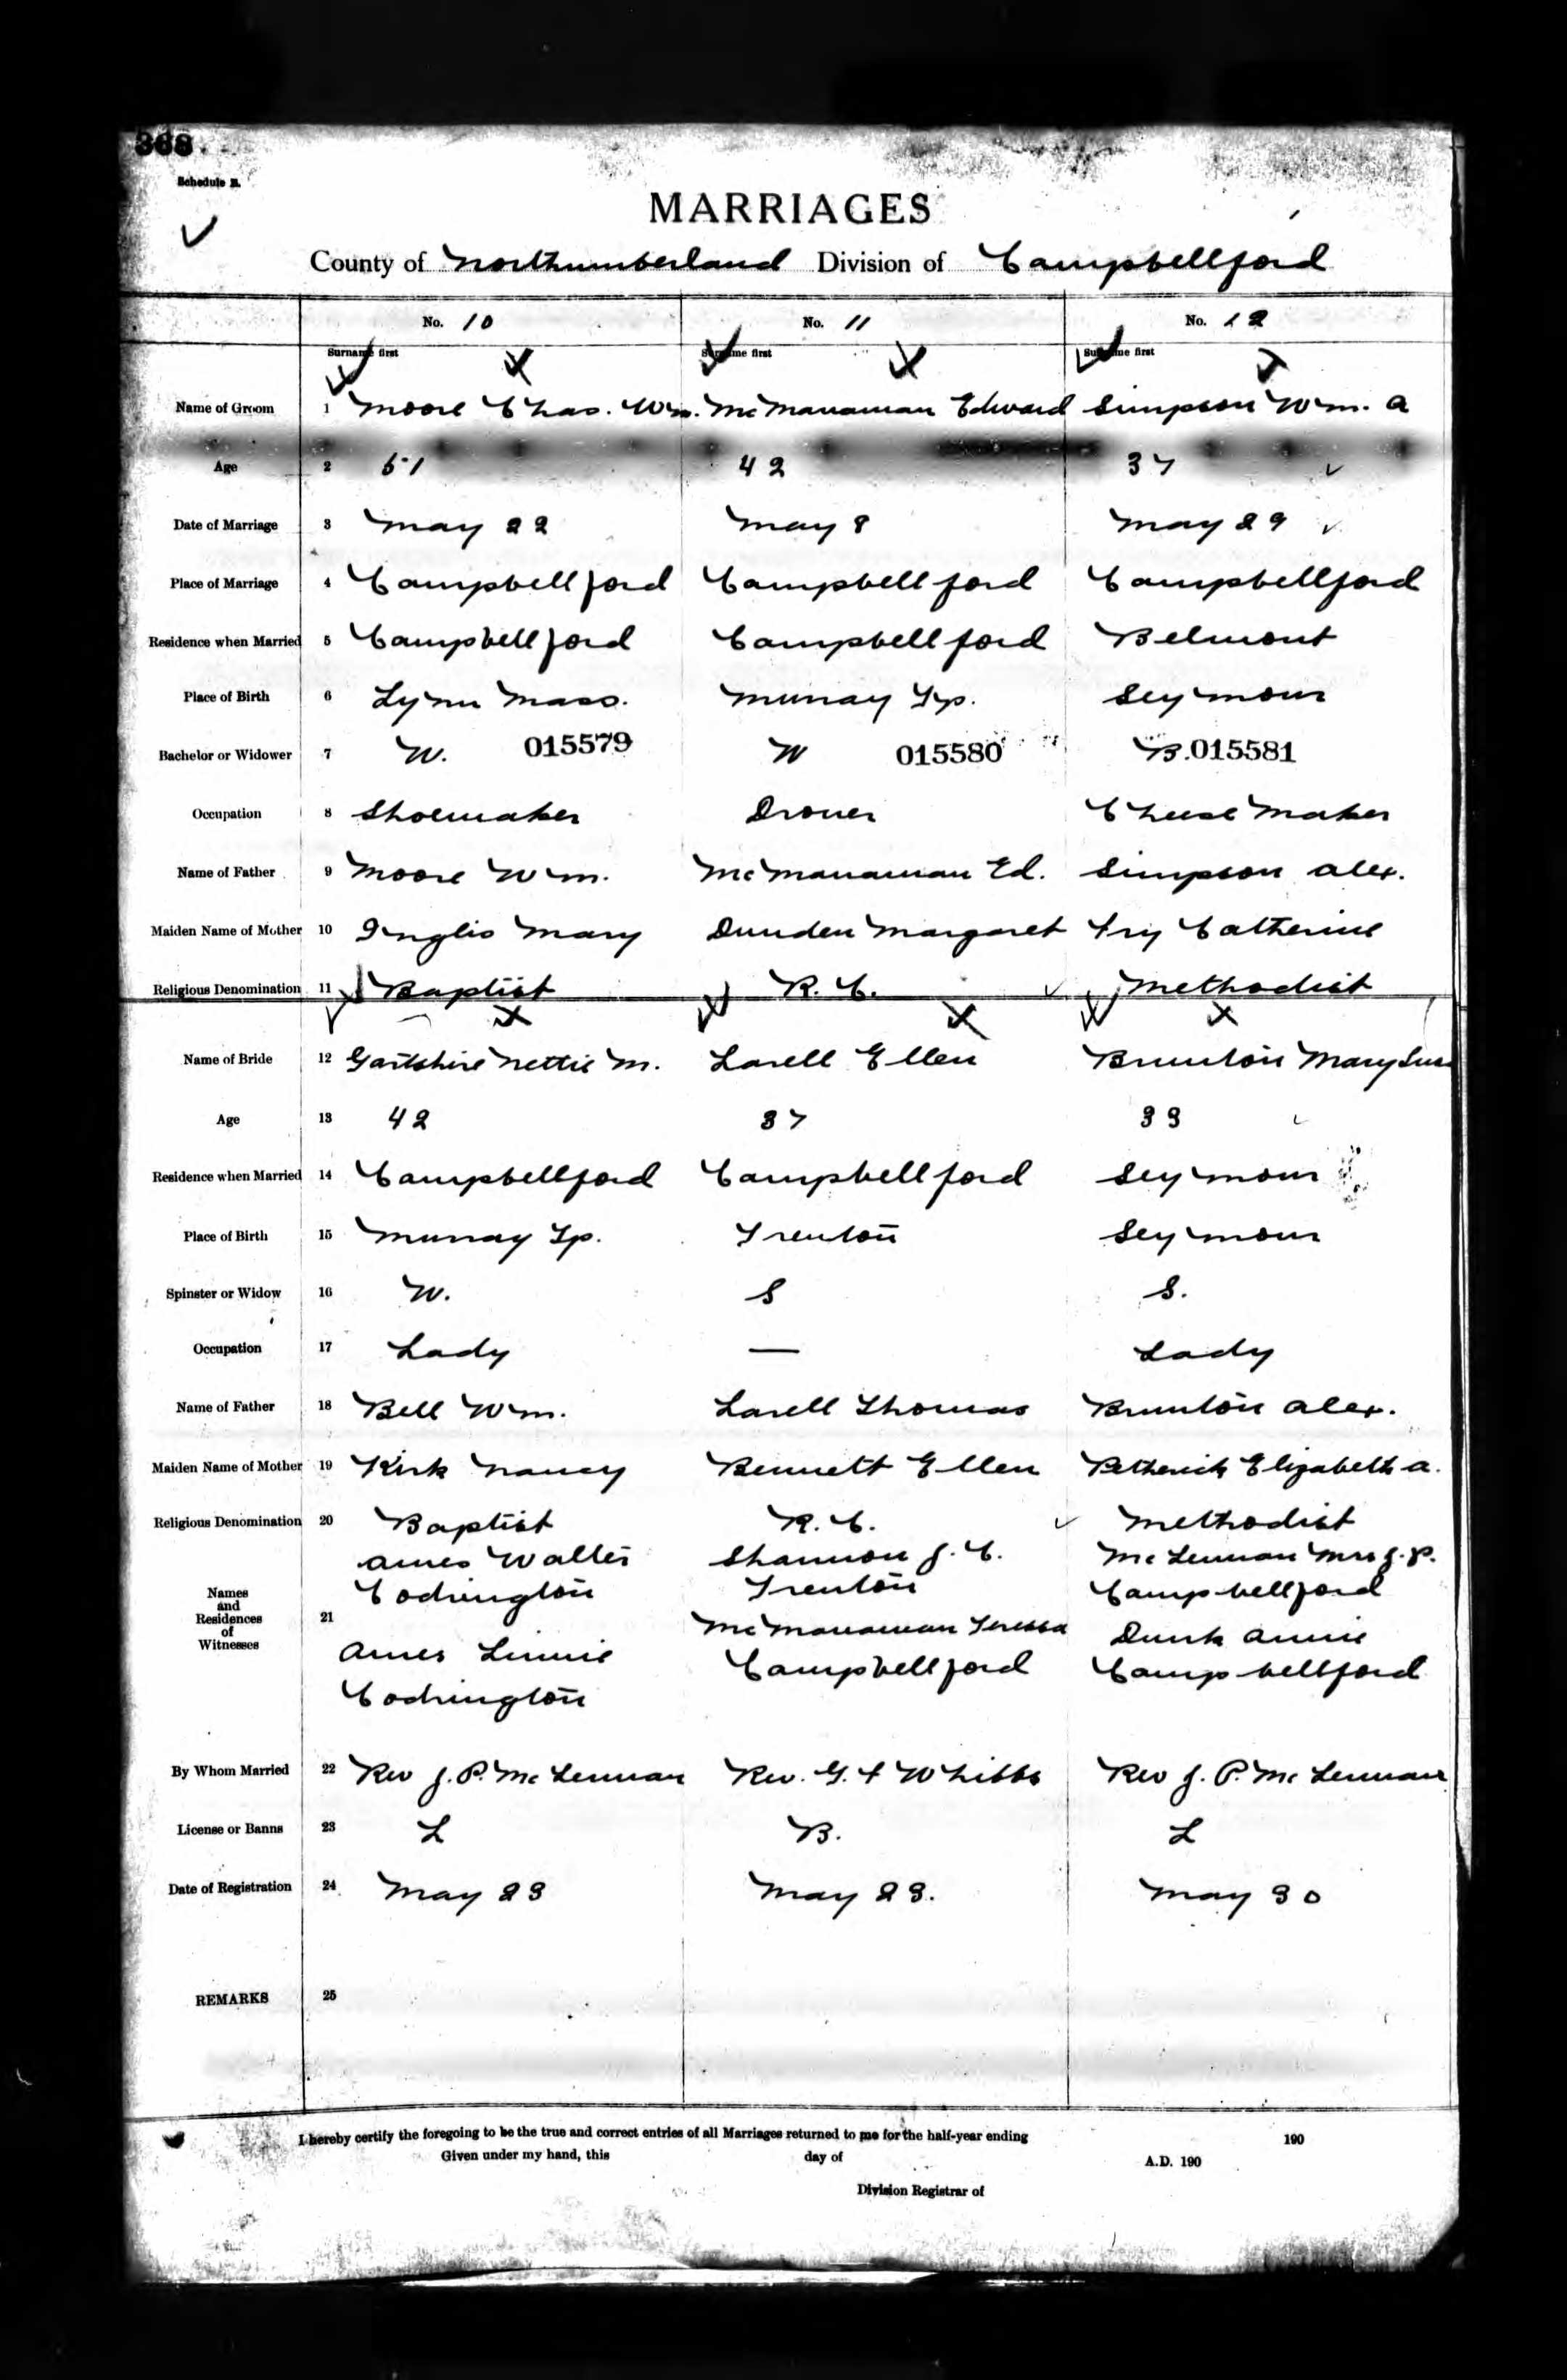 368
Schedule B.
MARRIAGES
County of Northumberland Division of Campbellford
No. 10 No. 11 No. 12
Surname first Surname first Surname first
Name of Groom 1 Moore Chas. Wm. McManaman Edward Simpson Wm. A
Age 2 51 42 37
Date of Marriage 3 May 22 May 8 May 29
Place of Marriage 4 Campbellford Campbellford Campbellford
Residence when Married 5 Campbellford Campbellford Belmont
Place of Birth 6 Lynn Mass. Murray Tp. Seymour
Bachelor or Widower 7 W. 015579 W 015580 B. 015581
Occupation 8 Shoemaker Drover Cheese Maker
Name of Father 9 Moore Wm. McManaman Ed. Simpson Alex.
Maiden Name of Mother 10 Inglis Mary Margaret Fry Catherine
Religious Denomination 11 Baptist R. C. Methodist
Name of Bride 12 Gartshire Nettie M. Lavell Ellen Brunton Mary
Age 13 42 37 33
Residence when Married 14 Campbellford Campbellford Seymour
Place of Birth 15 Murray Tp. Trenton Seymour
Spinster or Widow 16 W. S S.
Occupation 17 Lady — Lady
Name of Father 18 Bell Wm. Lavell Thomas Brunton Alex.
Maiden Name of Mother 19 Kirk Nancy Bennett Ellen Petherick Elizabeth A.
Religious Denomination 20 Baptist R. C. Methodist
Names and Residences of Witnesses 21
Ames Walter Shannon J. C. McLennan Mrs J. P.
Codrington Trenton Campbellford
Ames Linnie McManaman Teressa Dunk Annie
Codrington Campbellford Campbellford
By Whom Married 22 Rev J. P. McLennan Rev. G. F Whibbs Rev J. P. McLennan
License or Banns 23 L B. L
Date of Registration 24 May 23 May 23. May 30
REMARKS 25
I hereby certify the foregoing to be the true and correct entries of all Marriages returned to me for the half-year ending 190
Given under my hand, this day of A.D. 190
Division Registrar of